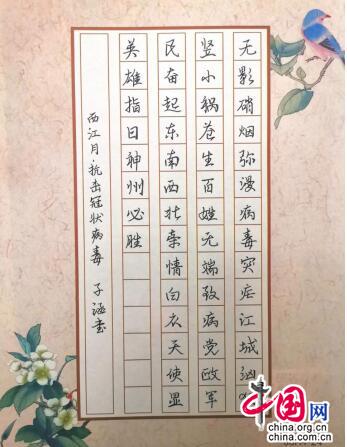 无影硝烟弥漫病毒突江城
竖小祸苍生百姓无端致病党政军
民奋起东南西北牵情白衣天使显
英雄指日神州必胜
西江月·抗击冠状病毒 子涵书
中国网
china.org.cn
china.com.cn